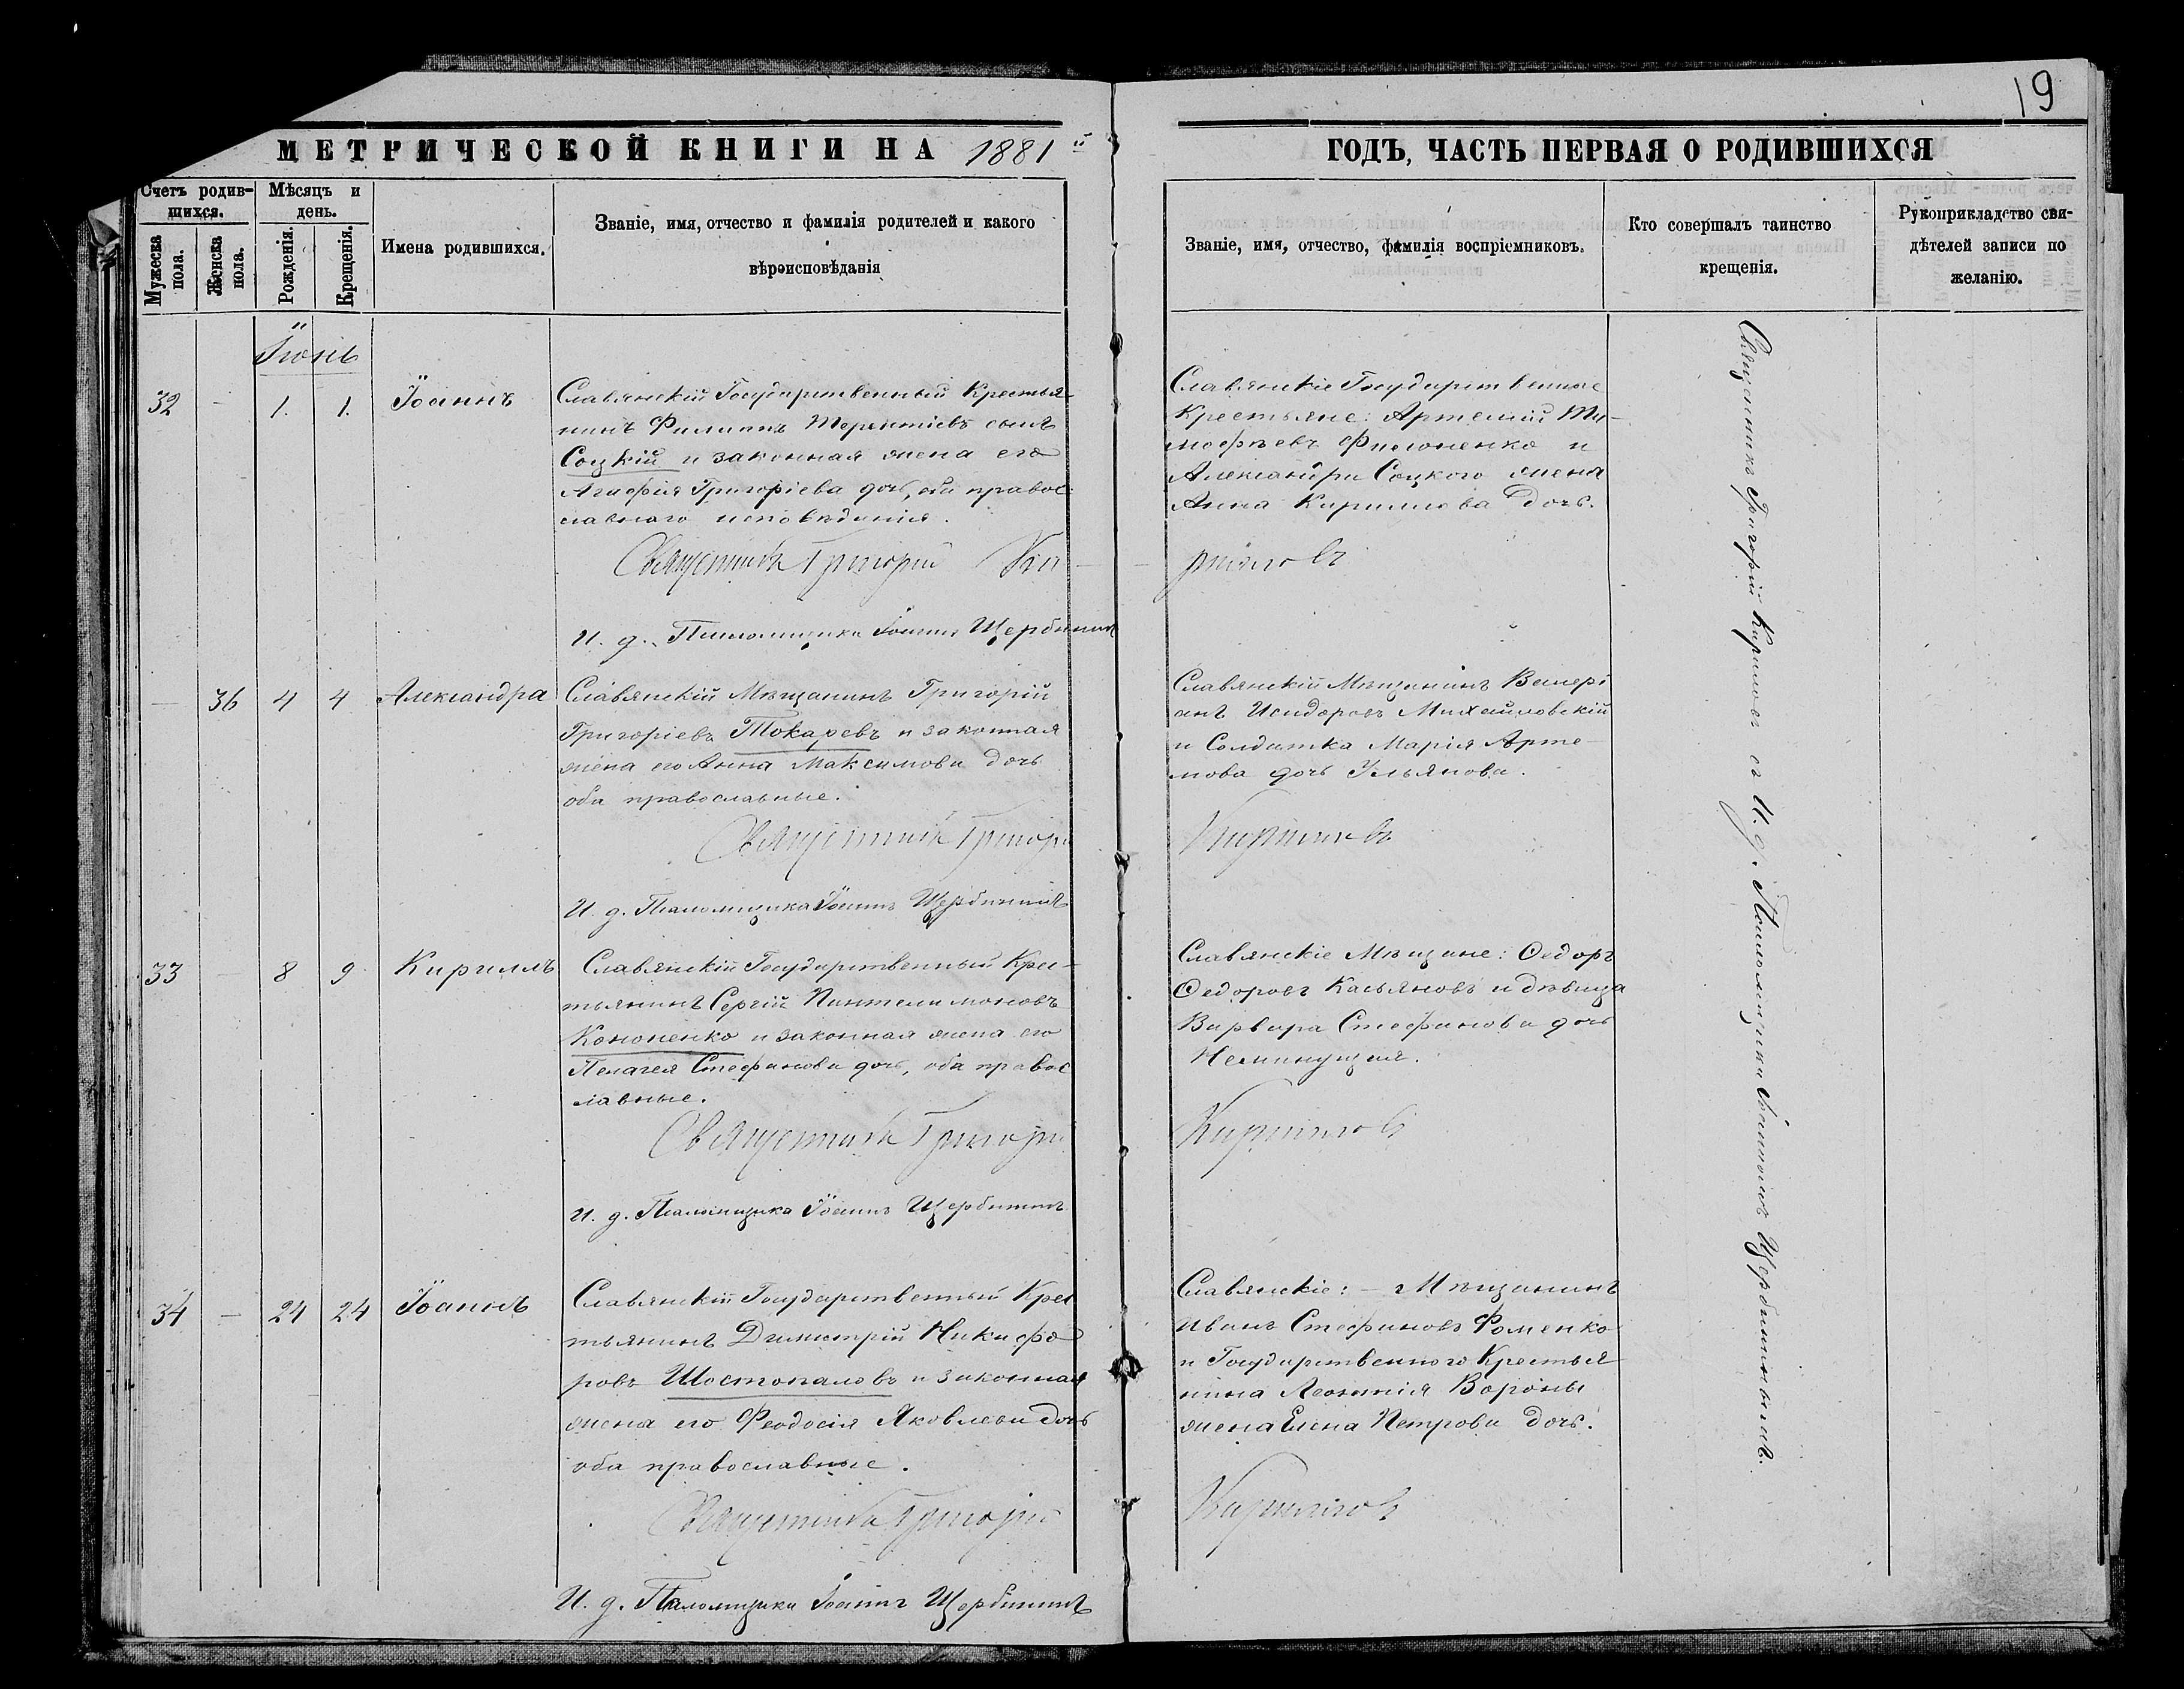 19
МЕТРИЧЕСКОЙ КНИГИ НА 1881й
ГОДЪ, ЧАСТЬ ПЕРВАЯ О РОДИВШИХСЯ
Счетъ родив-
шихся.
Мужеска пола.
Женска пола.
Мѣсяцъ и
день.
Рожденія.
Крещенія.
Имена родившихся.
Званіе, имя, отчество и фамилія родителей и какого
вѣроисповѣданія
Званіе, имя, отчество, фамилія воспріемниковъ.
Кто совершалъ таинство
крещенія.
Рукоприкладство сви-
дѣтелей записи по
желанію.
Іюнь
32 - 1. 1. Іоаннъ
Славянскій Государственный Крестья-
нинъ Филиппъ Терентіевъ сынъ
Соцкій и законная жена его
Агафія Григоріева дочь, оба правос-
лавнаго исповѣданія.
Священникъ Григорій Ки-
И. д. Псаломщика Іоаннъ Щербининъ
Славянскіе Государственные
Крестьяне: Артемій Ти-
мофѣевъ Филоненко и
Александра Соцкого жена
Анна Кириллова дочь.
риловъ
- 36 4 4 Александра
Славянскій Мѣщанинъ Григорій
Григоріевъ Токаревъ и законная
жена его Анна Максимова дочь
оба православные.
Священникъ Григорій
И. д. Псаломщика Іоаннъ Щербининъ
Славянскій Мѣщанинъ Валері
анъ Исидоровъ Михайловскій
и Солдатка Марія Арте-
мова дочь Ульянова.
Кириловъ
33 - 8 9 Кириллъ
Славянскій Государственный Крес-
тьянинъ Сергій Пантелимоновъ
Кононенко и законная жена его
Пелагея Стефанова дочь, оба правос
лавные.
Священникъ Григорій
И. д. Псаломщика Іоаннъ Щербининъ
Славянскіе Мѣщане: Ѳедоръ
Ѳедоровъ Касьяновъ и дѣвица
Варвара Стефанова дочь
Неминущая.
Кириловъ
34 - 24 24 Іоаннъ
Славянскій Государственный Крес
тьянинъ Димитрій Никифо-
ровъ Шостопаловъ и законная
жена его Феодосія Яковлева дочь
оба православные.
Священникъ Григорій
И. д. Псаломщика Іоаннъ Щербининъ
Славянскіе: - Мѣщанинъ
Иванъ Стефановъ Фоменко
и Государственнаго Крестья
нина Леонтія Вороны
жена Елена Петрова дочь.
Кириловъ
Священникъ Григорій Кириловъ съ И. д. Псаломщика Іоанномъ Щербининымъ.